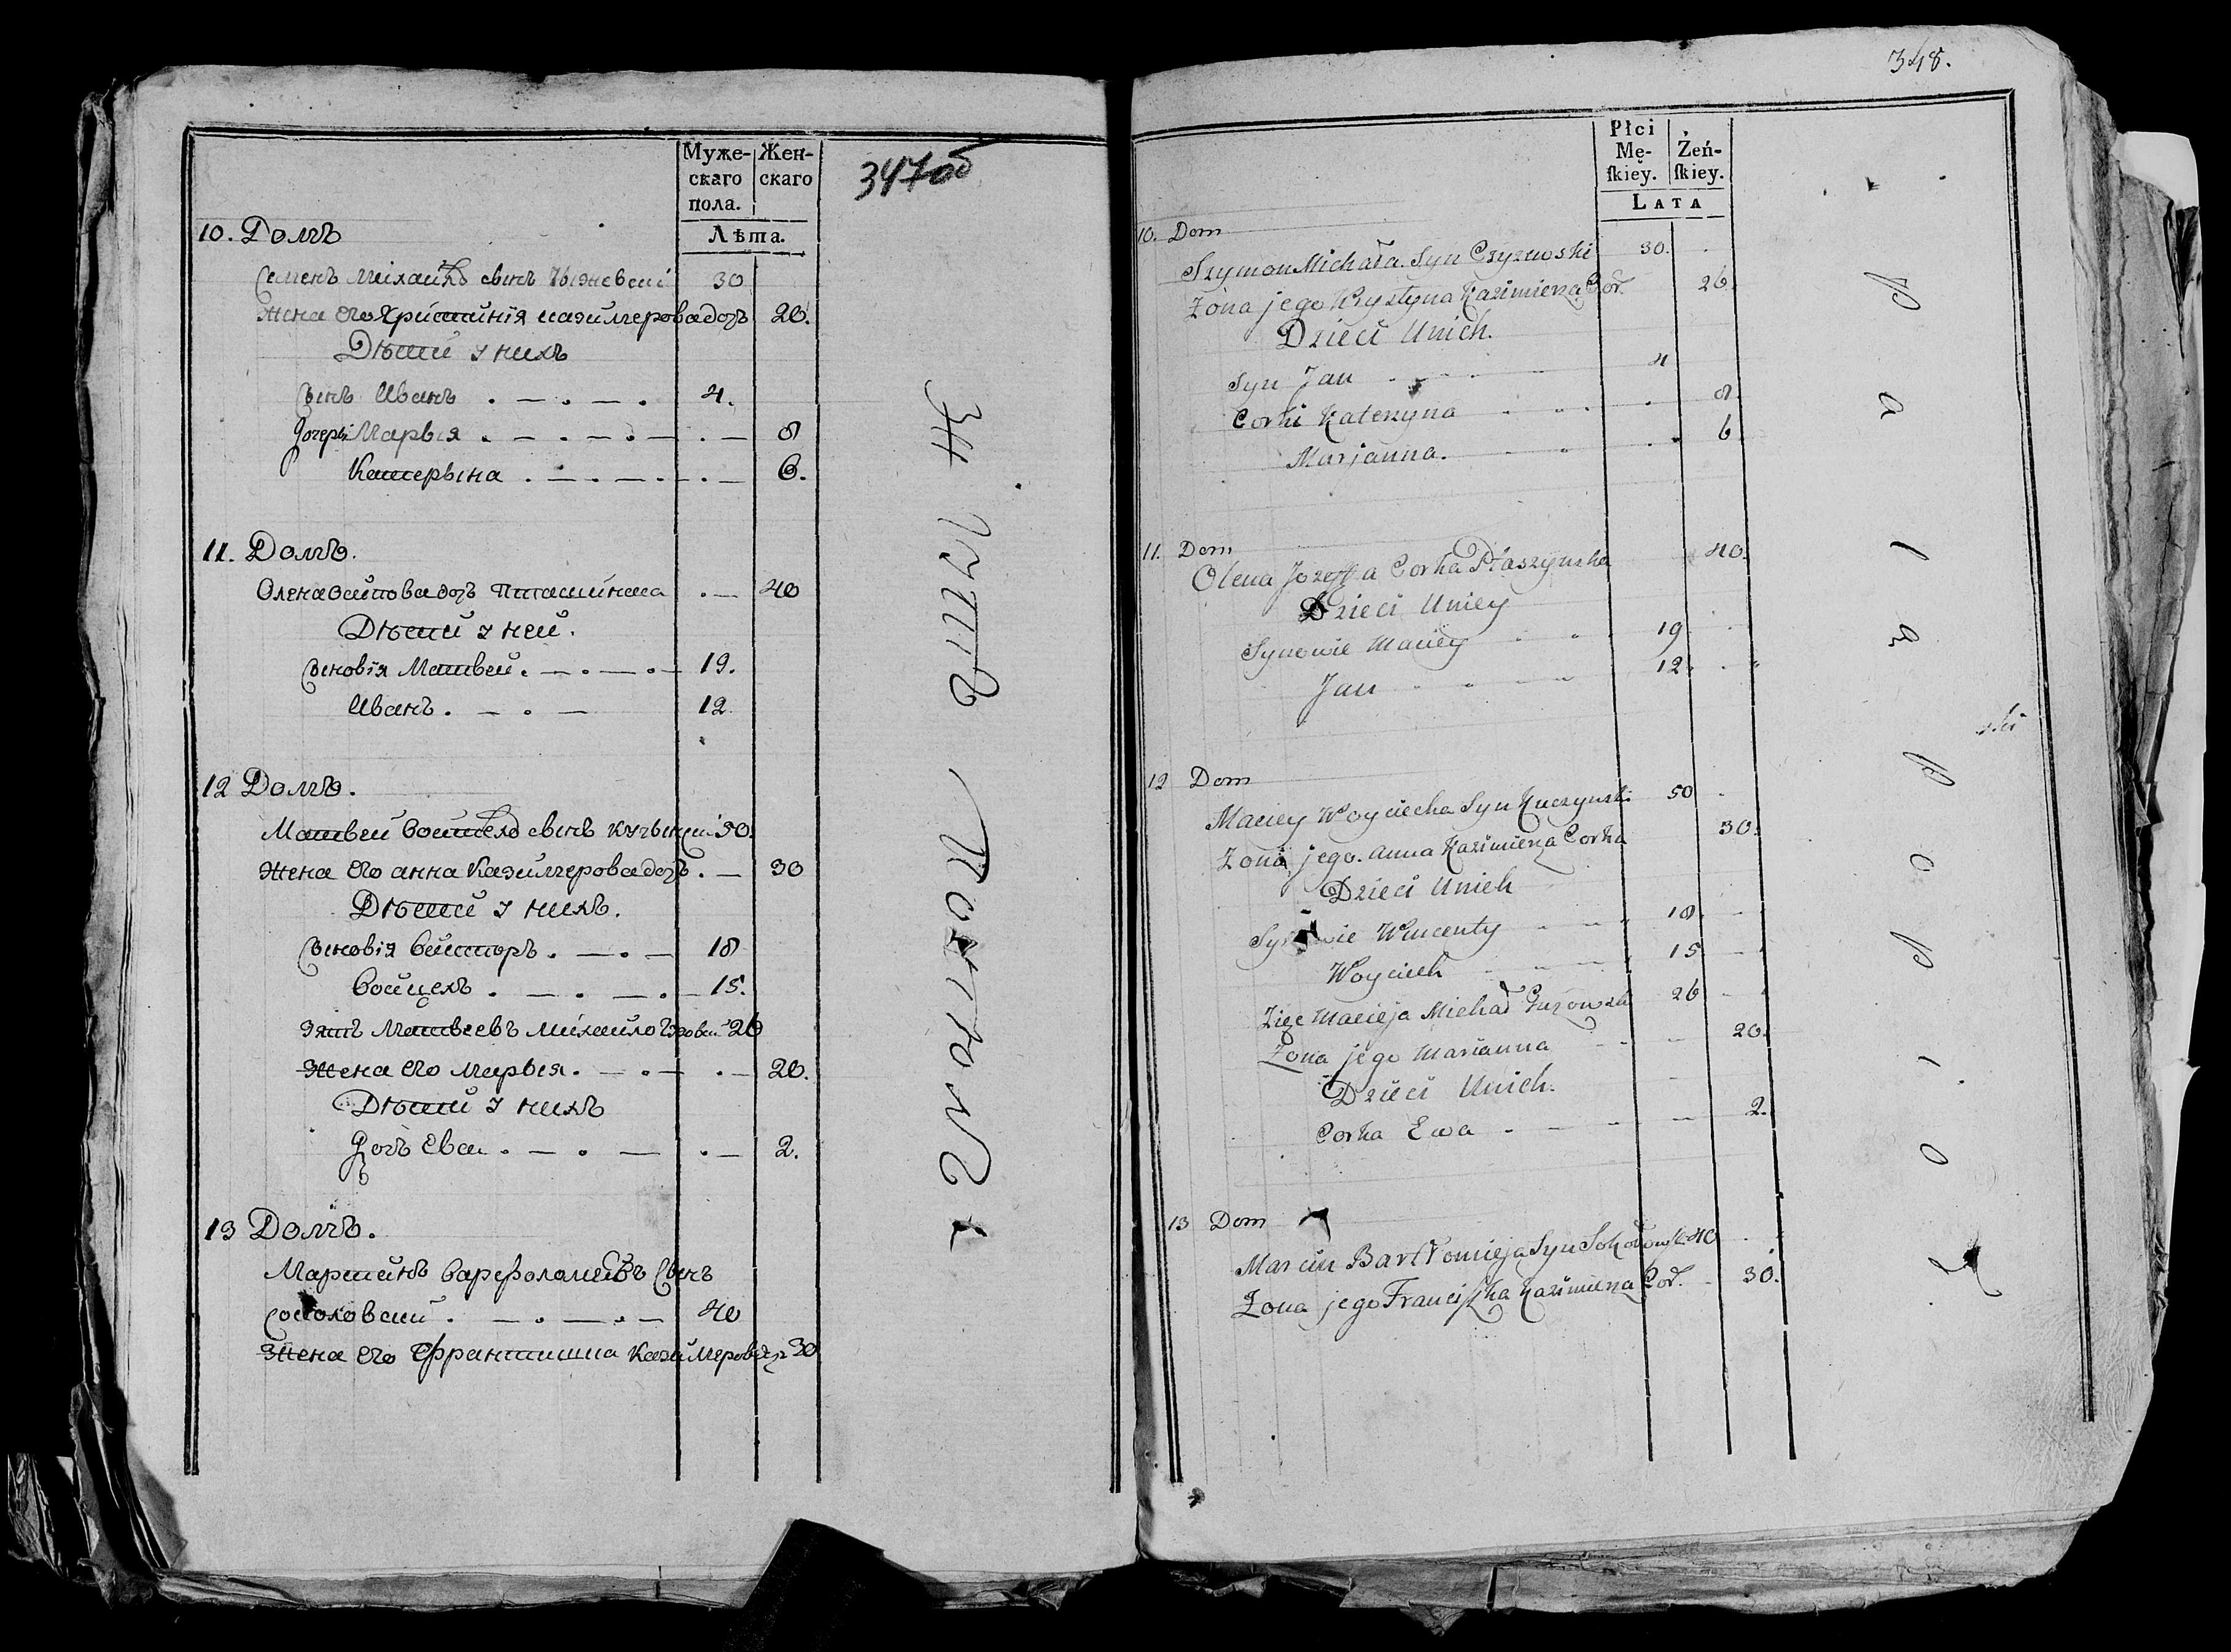 Муже-
скаго
пола.
Жен-
скаго
Лѣта.
347об
10. Домъ
Семенъ Михайла сынъ Чыжевскі 30
Жена его Христинія Казимерова дочь 26.
Дѣти у нихъ
Сынъ Иванъ . — . — . 4.
Дочери Марыя . — . — . — . — 8
Катерына . — . — . — . — 6.
11. Домъ.
Олена Осипова дочь Пташинска . — 40
Дѣти у ней.
Сыновія Матвей . — . — . — 19.
Иванъ . — . — 12
12 Домъ.
Матвей Войтеха сынъ Кучынски 50.
Жена его анна Казимерова дочь . — 30
Дѣти у нихъ.
Сыновія — . — 18
Войцехъ . — . — . — 15.
Зять Матвеевъ Михайло 26
Жена его марыя . — . — . — 20.
Дѣти у нихъ
Дочь Ева . — . — . — 2.
13 Домъ.
Мартинъ Варфоломеевъ Сынъ
Соколовски . — . — . — 40
Жена его Франтишка Казимерова 30
348.
Płci
Mę-
ſkiey.
Żeń-
ſkiey.
LATA
10. Dom
Szymon Michała Syn Czyzewski 30.
Zona jego Krystyna Kazimierza Cor. 26.
Dzieci Unich.
Syn Jan 4
Corki Katerzyna 8.
Marjanna. 6
11. Dom
Olena Jozeffa Corka Ptaszynska 40.
Dzieci Uniey
Synowie Maciey 19
Jan 12.
12 Dom
Maciey Woyciecha Syn Kuczynski 50
Zona jego. Anna Kazimierza Corka 30.
Dzieci Unich
Synowie Wincenty 18.
Woyciech 15
Zięc Macieja Michał 26
Zona jego Marianna 20.
Dzieci Unich.
Corka Ewa 2.
13 Dom
Marcin Bartłomieja Syn Sokołowski 40
Zona jego Franciſzka Kazimierza Cor. 30.